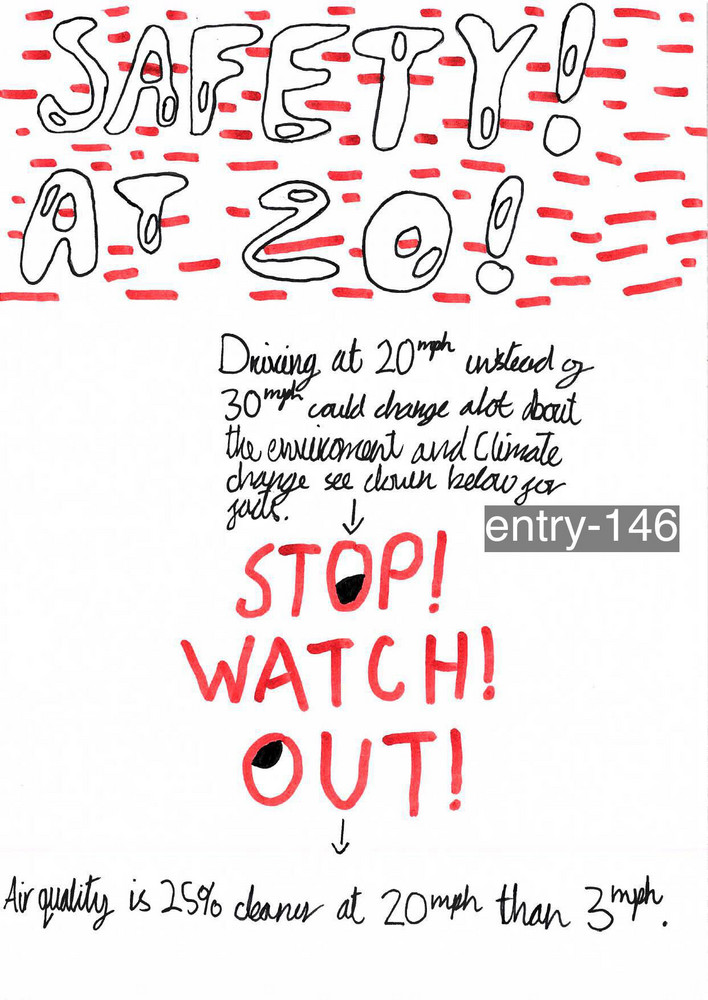 SAFETY!
AT 20!
Driving at 20mph instead of
30mph could change alot about
the enviroment and Climate
change see down below for
facts.
entry-146
STOP!
WATCH!
OUT!
Air quality is 25% cleaner at 20mph than 3mph.